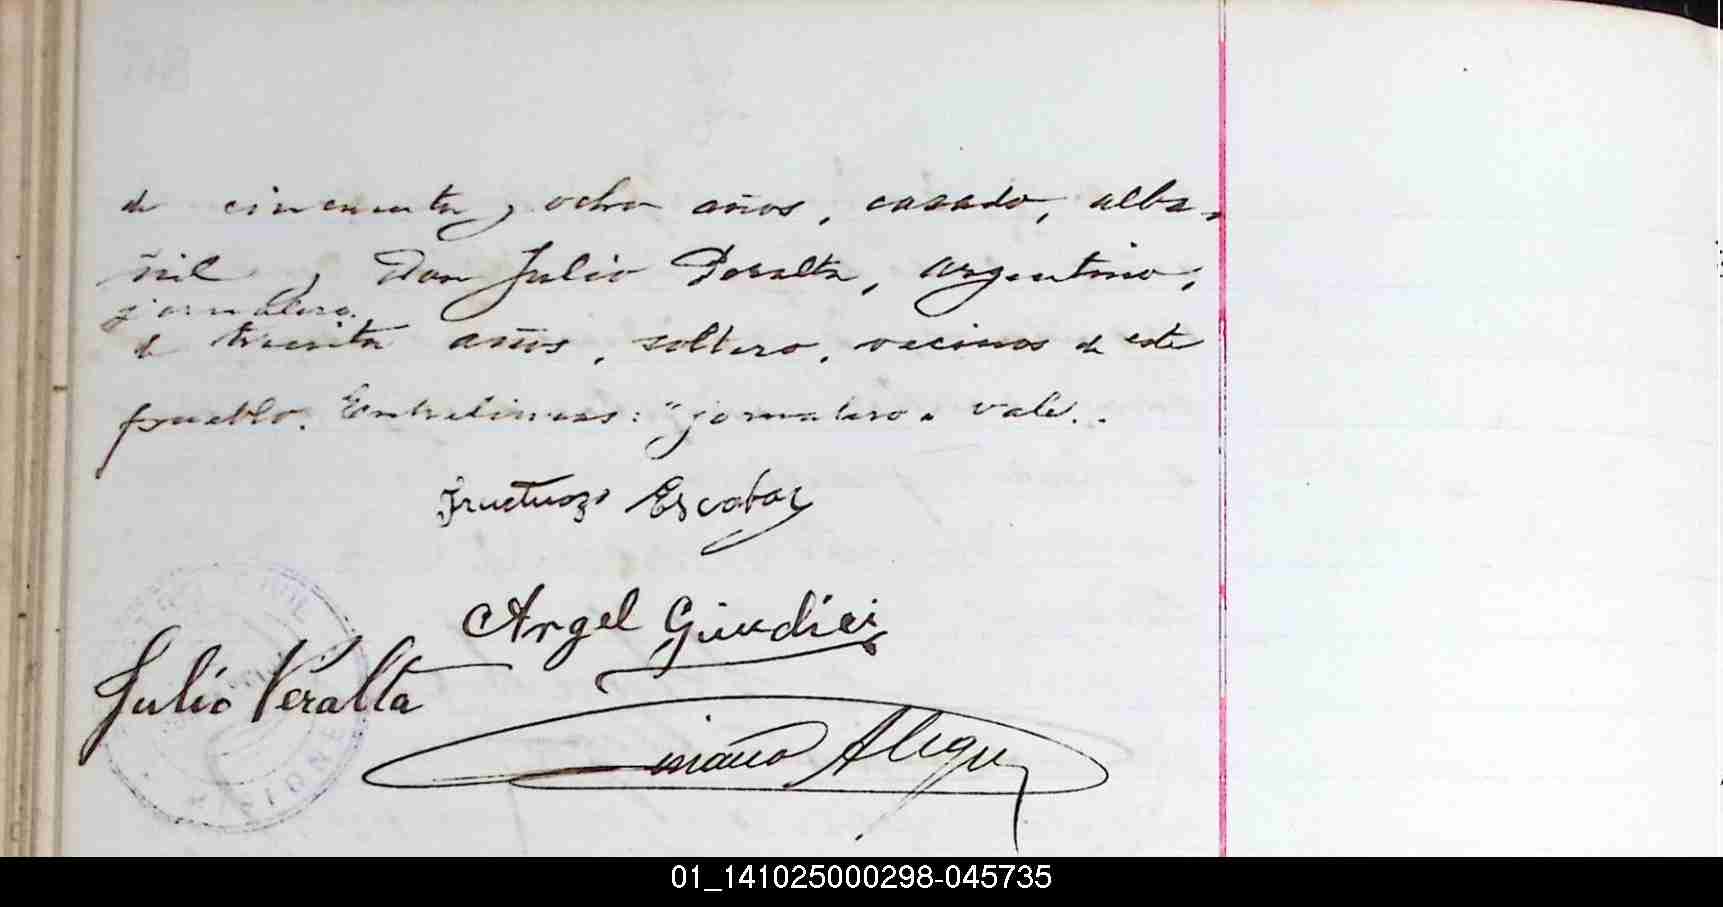 de cincuenta y ocho años, casado, alba-
ñil y Don Julio Peralta, argentino,
jornalero.
de treinta años, soltero, vecinos de este
pueblo. Entrelineas: "jornalero" vale..
Fructuozo Escobar
Angel Giudici
Julio Peralta
Alegre
MISIONES
01_141025000298-045735